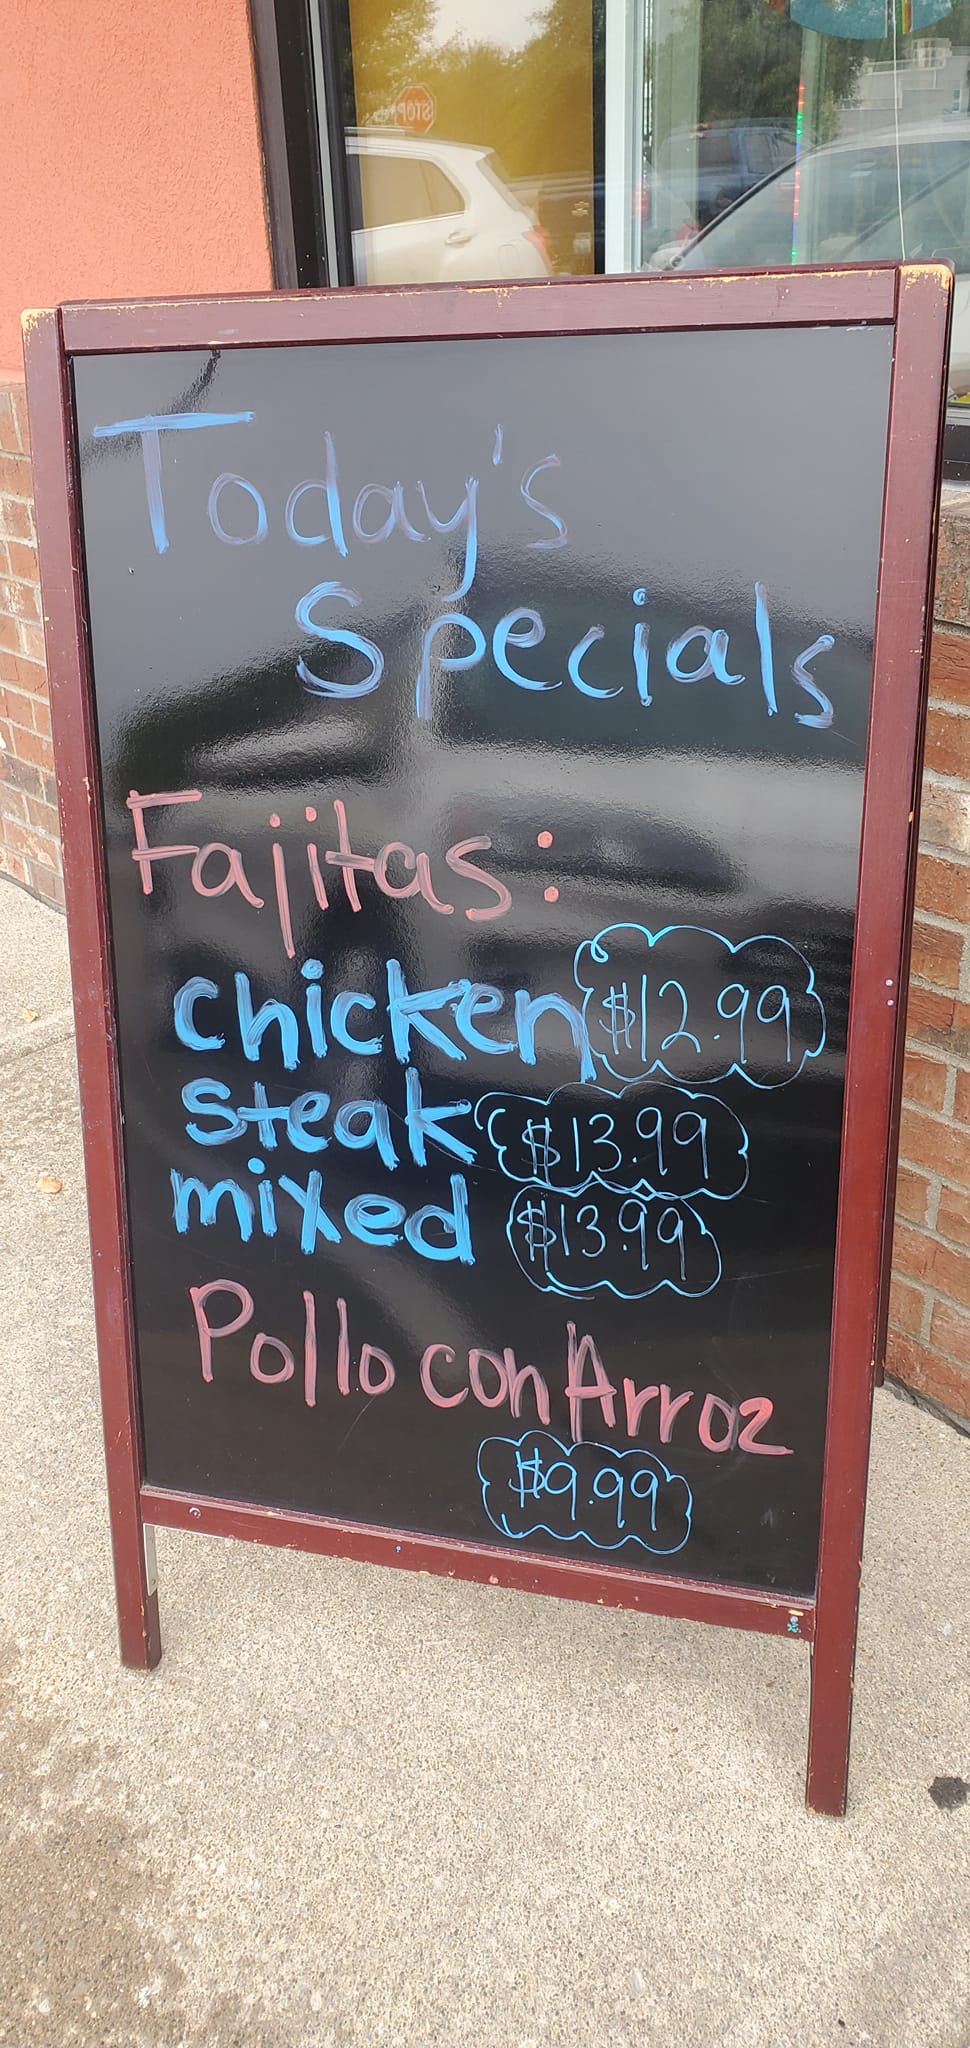 STOP
Today's
Specials
Fajitas:
chicken $12.99
steak $13.99
mixed $13.99
Pollo con Arroz
$9.99